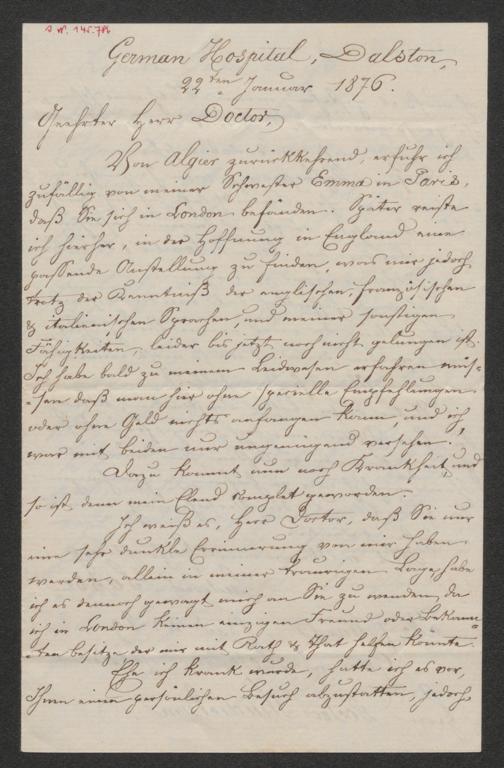 German Hospital, Dalston,
22ten Januar 1876.
Geehrter Herr Doctor,
Von Algier zurückkehrend, erfuhr ich
zufällig von meiner Schwester Emma in Paris,
daß Sie sich in London befänden. Später reiste
ich hierher, in der Hoffnung in England eine
passende Anstellung zu finden, was mir jedoch
trotz der Kenntniß der englischen, französischen
& italienischen Sprachen, und meiner sonstigen
Fähigkeiten, leider bis jetzt noch nicht gelungen ist.
Ich habe bald zu meinem Leidwesen erfahren müs-
-sen daß man hier ohne specielle Empfehlungen
oder ohne Geld nichts anfangen kann, und ich
war mit beiden nur ungenügend versehen.
Dazu kommt nun noch Krankheit, und
so ist denn mein Elend complet geworden.
Ich weiß es, Herr Doctor, daß Sie nur
eine sehr dunkle Erinnerung von mir haben
werden, allein in meiner traurigen Lage, habe
ich es dennoch gewagt mich an Sie zu wenden, da
ich in London keinen einzigen Freund oder Bekann-
-ten besitze der mir mit Rath & That helfen könnte.
Ehe ich krank wurde, hatte ich es vor,
Ihnen einen persönlichen Besuch abzustatten, jedoch